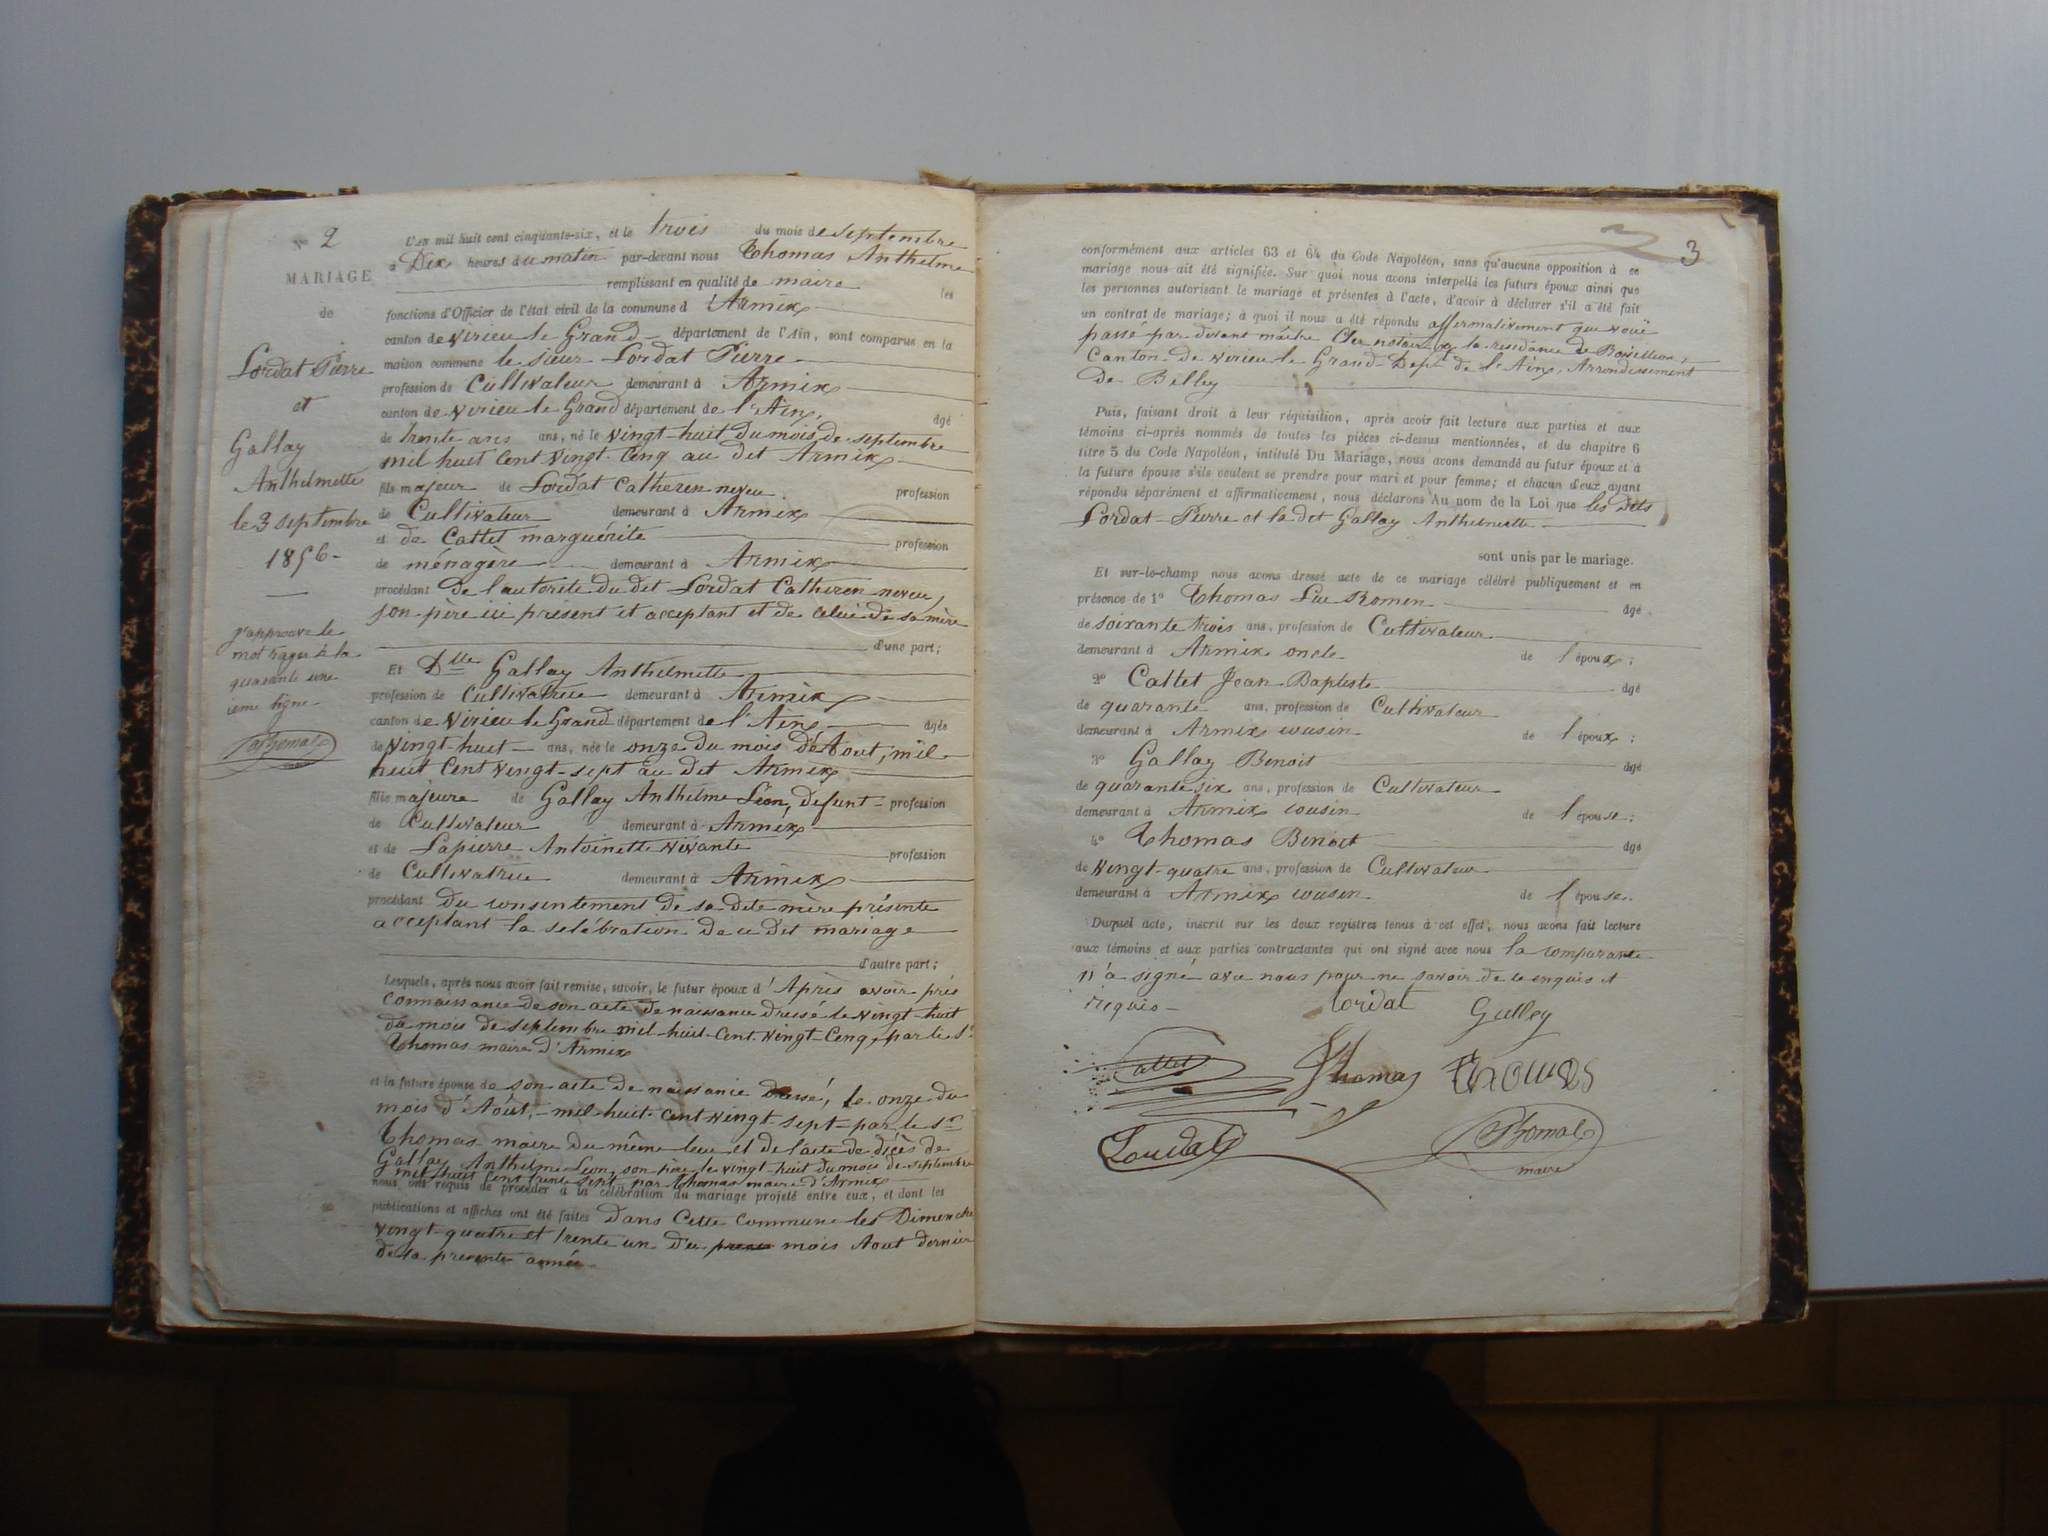 N° 2
MARIAGE
de
Lordat Pierre
et
Gallay
Anthelmette
le 3 septembre
1856-
J'approuve le
mot rayer à la
quarante une
ieme ligne
Thomas
L'an mil huit cent cinquante-six, et le trois du mois de septembre
à Dix heures du matin par-devant nous Thomas Anthelme
remplissant en qualité de maire les
fonctions d'Officier de l'état civil de la commune d Armix
canton de Virieu le Grand département de l'Ain, sont comparus en la
maison commune le sieur Lordat Pierre
profession de Cultivateur demeurant à Armix
canton de Virieu le Grand département de l'Ain, âgé
de trente ans ans, né le vingt-huit du mois de septembre
mil huit cent vingt-cinq au dit Armix
fils majeur de Lordat Catheren neveu profession
de Cultivateur demeurant à Armix
et de Cattet marguérite profession
de ménagère demeurant à Armix
procédant De l'autorité du dit Lordat Catheren neveu,
son père ici présent et acceptant et de celui de sa mère
d'une part;
Et Dlle Gallay Anthelmette
profession de Cultivatrice demeurant à Armix
canton de Virieu le Grand département de l'Ain âgée
de vingt-huit ans, née le onze du mois d'Aout, mil
huit cent vingt-sept au dit Armix
fille majeure de Gallay Anthelme Léon, defunt profession
de Cultivateur demeurant à Armix
et de Lapierre Antoinette vivante profession
de Cultivatrice demeurant à Armix
procédant Du consentement de sa dite mère présente
acceptant la selébration de ce dit mariage
d'autre part;
Lesquels, après nous avoir fait remise, savoir, le futur époux d'Après avoir pris
connaissance de son acte de naissance dressé le vingt-huit
du mois de septembre mil-huit-cent-vingt-cinq, par le Sr
Thomas maire d'Armix
et la future épouse de son acte de naissance dressé, le onze du
mois d'Août, mil-huit-cent-vingt-sept par le Sr
Thomas maire du même lieu et de l'acte de décès de
Gallay Anthelme Léon, son père le vingt-huit du mois de septembre
mil huit cent trente sept par Thomas maire d'Armix
nous ont requis de procéder à la célébration du mariage projeté entre eux, et dont les
publications et affiches ont été faites Dans Cette Commune les Dimenche
vingt-quatre et trente un du mois Aout dernier
de la presente année
3
conformément aux articles 63 et 64 du Code Napoléon, sans qu'aucune opposition à ce
mariage nous ait été signifiée. Sur quoi nous avons interpellé les futurs époux ainsi que
les personnes autorisant le mariage et présentes à l'acte, d'avoir à déclarer s'il a été fait
un contrat de mariage; à quoi il nous a été répondu affermativement
passé par devant maitre notaire la residence de
Canton de Virieu le Grand Dept de l'Ain, Arrondissement
De Belley
Puis, faisant droit à leur réquisition, après avoir fait lecture aux parties et aux
témoins ci-après nommés de toutes les pièces ci-dessus mentionnées, et du chapitre 6
titre 5 du Code Napoléon, intitulé Du Mariage, nous avons demandé au futur époux et à
la future épouse s'ils veulent se prendre pour mari et pour femme; et chacun d'eux ayant
répondu séparément et affirmativement, nous déclarons Au nom de la Loi que les dits
Lordat Pierre et la dit Gallay Anthelmette
sont unis par le mariage.
Et sur-le-champ nous avons dressé acte de ce mariage célébré publiquement et en
présence de 1° Thomas Luc Romen âgé
de soixante trois ans, profession de Cultivateur
demeurant à Armix oncle de l'époux;
2° Cattet Jean Baptiste âgé
de quarante ans, profession de Cultivateur
demeurant à Armix cousin de l'époux;
3° Gallay Benoit âgé
de quarante six ans, profession de Cultivateur
demeurant à Armix cousin de l'épouse;
4° Thomas Benoit âgé
de vingt-quatre ans, profession de Cultivateur
demeurant à Armix cousin de l'épouse.
Duquel acte, inscrit sur les deux registres tenus à cet effet, nous avons fait lecture
aux témoins et aux parties contractantes qui ont signé avec nous la comparante
n'a signé avec nous pour ne savoir de ce enquis et
requis
lordat Galley
Cattet Thomas Thomas
Lordat Thomas
maire